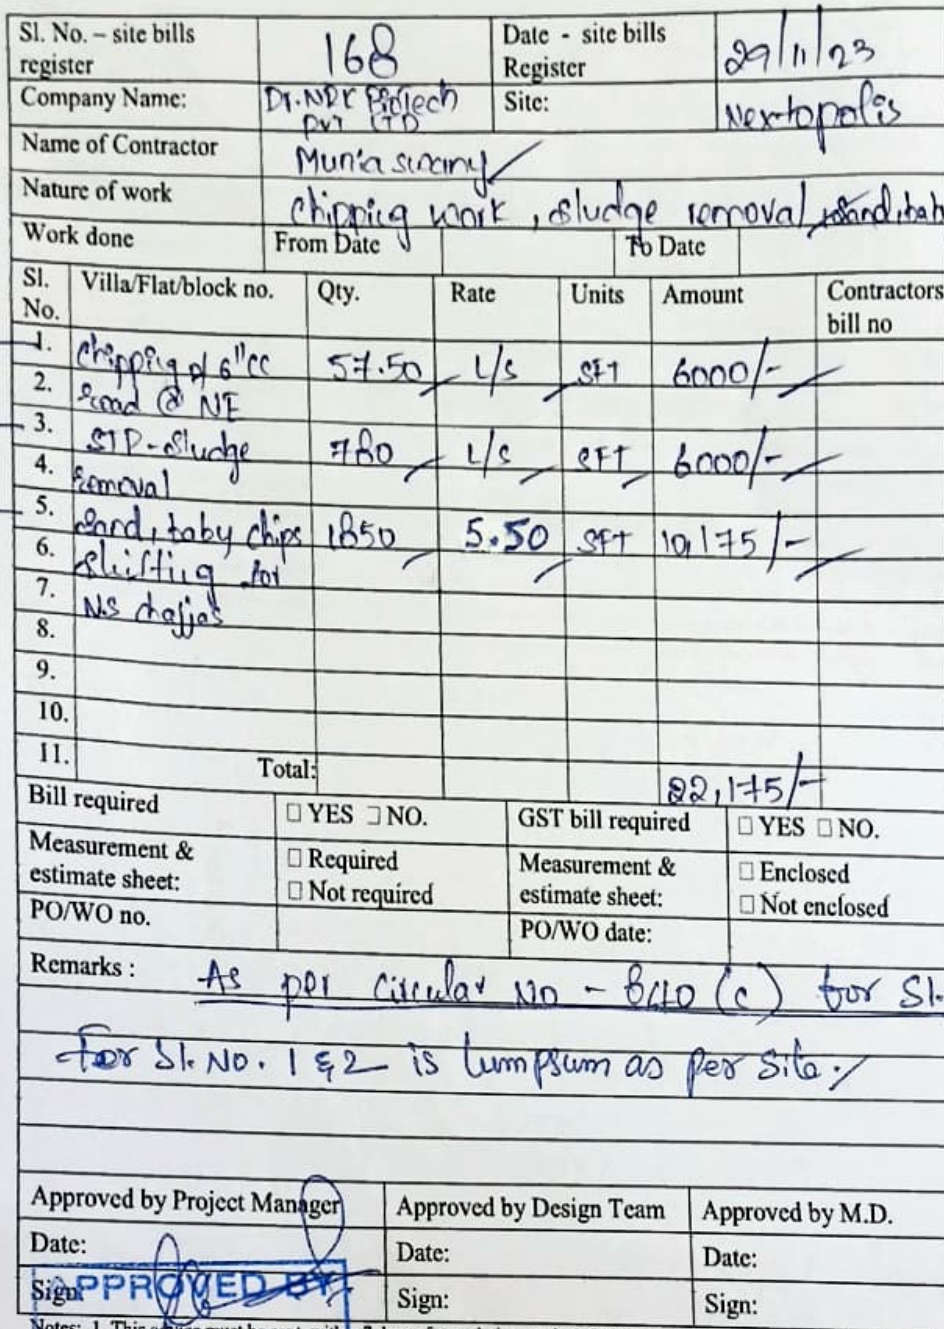 Sl. No. – site bills register 168 Date - site bills Register 29/11/23
Company Name: Dr. NDR Biotech Pvt LTD Site: Nextopolis
Name of Contractor Munia swamy
Nature of work Chipping work, sludge removal, sand, bab
Work done From Date To Date
Sl. No. Villa/Flat/block no. Qty. Rate Units Amount Contractors bill no
1. Chipping of 6"CC 57.50 L/S SFT 6000/-
2. Road @ NE
3. STP-Sludge 780 L/S SFT 6000/-
4. Removal
5. Sand, baby chips 1850 5.50 SFT 10,175/-
6. Shifting for
7. N.S chajjas
8.
9.
10.
11. Total: 22,175/-
Bill required □ YES □ NO. GST bill required □ YES □ NO.
Measurement & estimate sheet: □ Required □ Not required Measurement & estimate sheet: □ Enclosed □ Not enclosed
PO/WO no. PO/WO date:
Remarks : As per Circular No - (c) for Sl.
For Sl. No. 1 & 2 is lumpsum as per site.
Approved by Project Manager Approved by Design Team Approved by M.D.
Date: Date: Date:
Sign: Sign: Sign:
APPROVED BY
Notes: 1. This must be